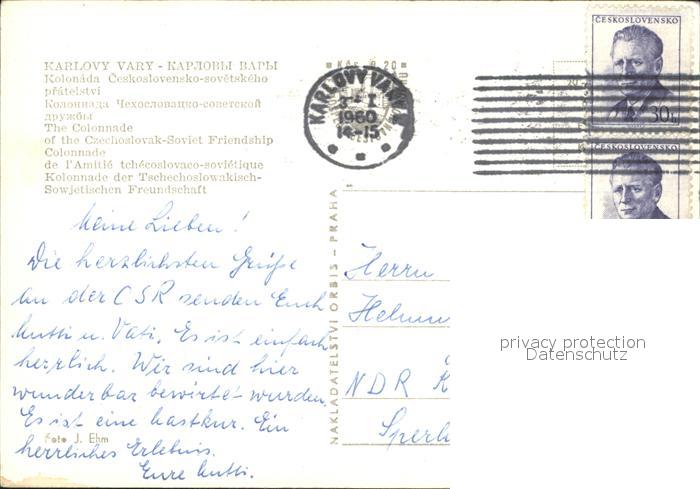 KARLOVY VARY - КАРЛОВЫ ВАРЫ
Kolonáda Československo-sovětského
přátelství
Колоннада Чехословацко-советской
дружбы
The Colonnade
of the Czechoslovak-Soviet Friendship
Colonnade
de l'Amitié tchécoslovaco-soviétique
Kolonnade der Tschechoslowakisch-
Sowjetischen Freundschaft
Meine Lieben!
Die herzlichsten Grüße
an der ČSR senden Euch
Mutti u. Vati. Es ist einfach
herrlich. Wir sind hier
wunderbar bewirtet wurden.
Es ist eine Gastkur. Ein
herrliches Erlebnis.
Eure Mutti.
Foto J. Ehm
NAKLADATELSTVÍ ORBIS - PRAHA
Kčs 0,20
KARLOVY VARY
1960
14-15
ČESKOSLOVENSKO
30h
ČESKOSLOVENSKO
Herrn
Helmu
NDR K
Sperl
privacy protection
Datenschutz